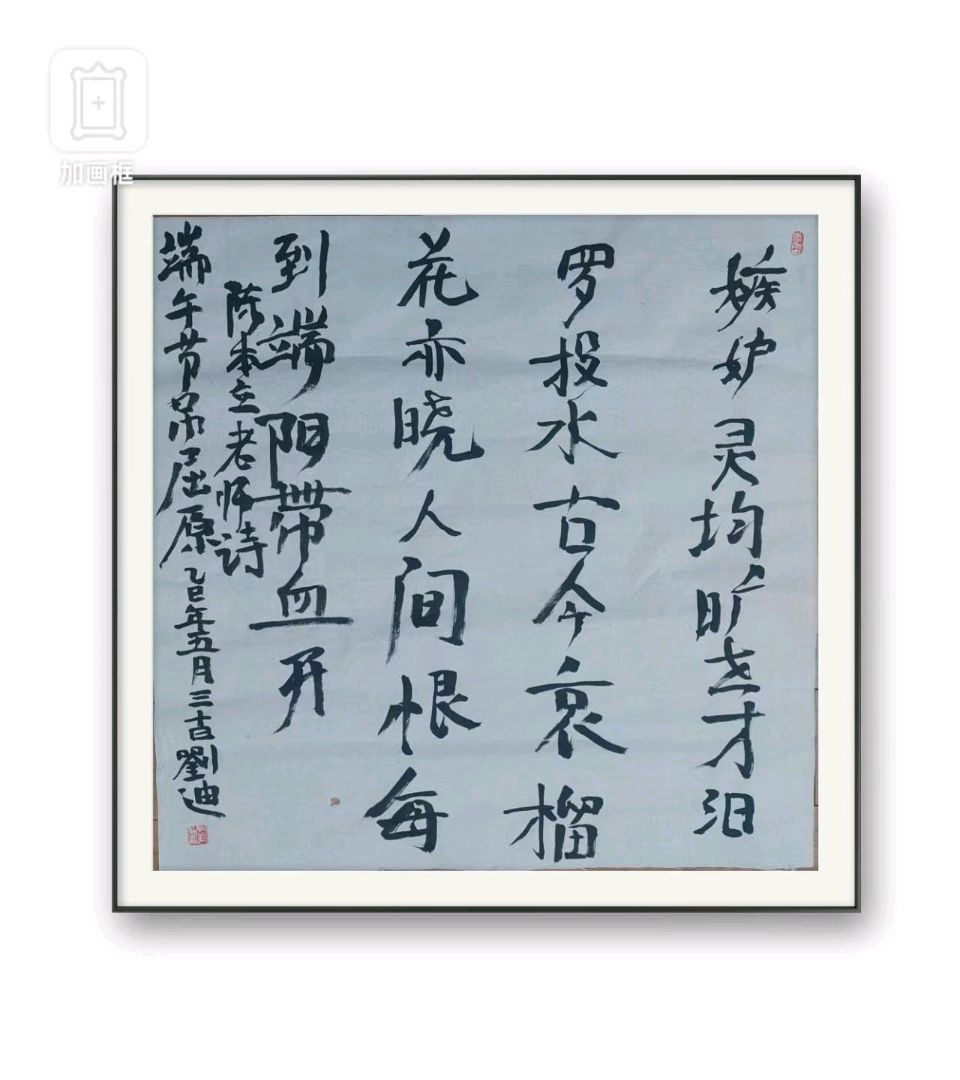 加画框
嫉妒灵均旷世才汨
罗投水古今哀榴
花亦晓人间恨每
到端阳带血开
陈本立老师诗
端午节吊屈原乙巳年五月三古劉迪